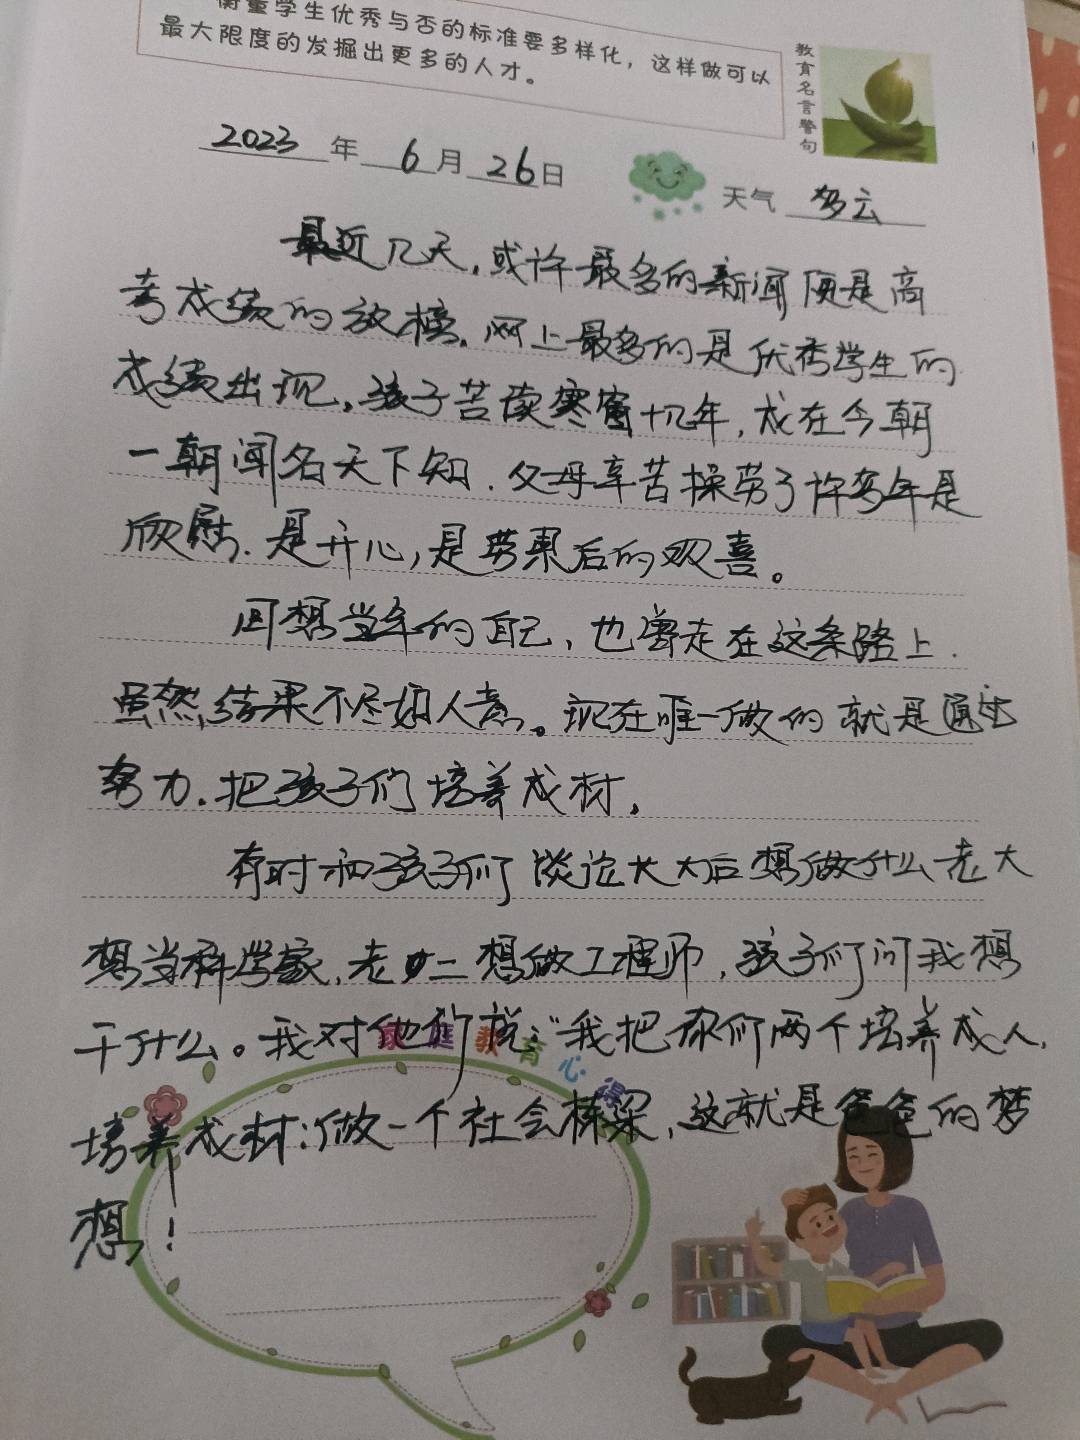 衡量学生优秀与否的标准要多样化，这样做可以
最大限度的发掘出更多的人才。
教育名言警句
2023年6月26日
天气 多云
最近几天，或许最多的新闻便是高
考成绩的放榜，网上最多的是优秀学生的
成绩出现，孩子苦读寒窗十几年，成在今朝
一朝闻名天下知．父母辛苦操劳了许多年是
欣慰．是开心，是劳累后的欢喜。
回想当年的自己，也曾走在这条路上．
虽然，结果不尽如人意。现在唯一做的就是通过
努力．把孩子们培养成材，
有时和孩子们谈论长大后想做什么老大
想当科学家，老二想做工程师，孩子们问我想
干什么。我对他们说：“我把你们两个培养成人，
家庭教育心得
培养成材：做一个社会栋梁，这就是爸爸的梦
想！